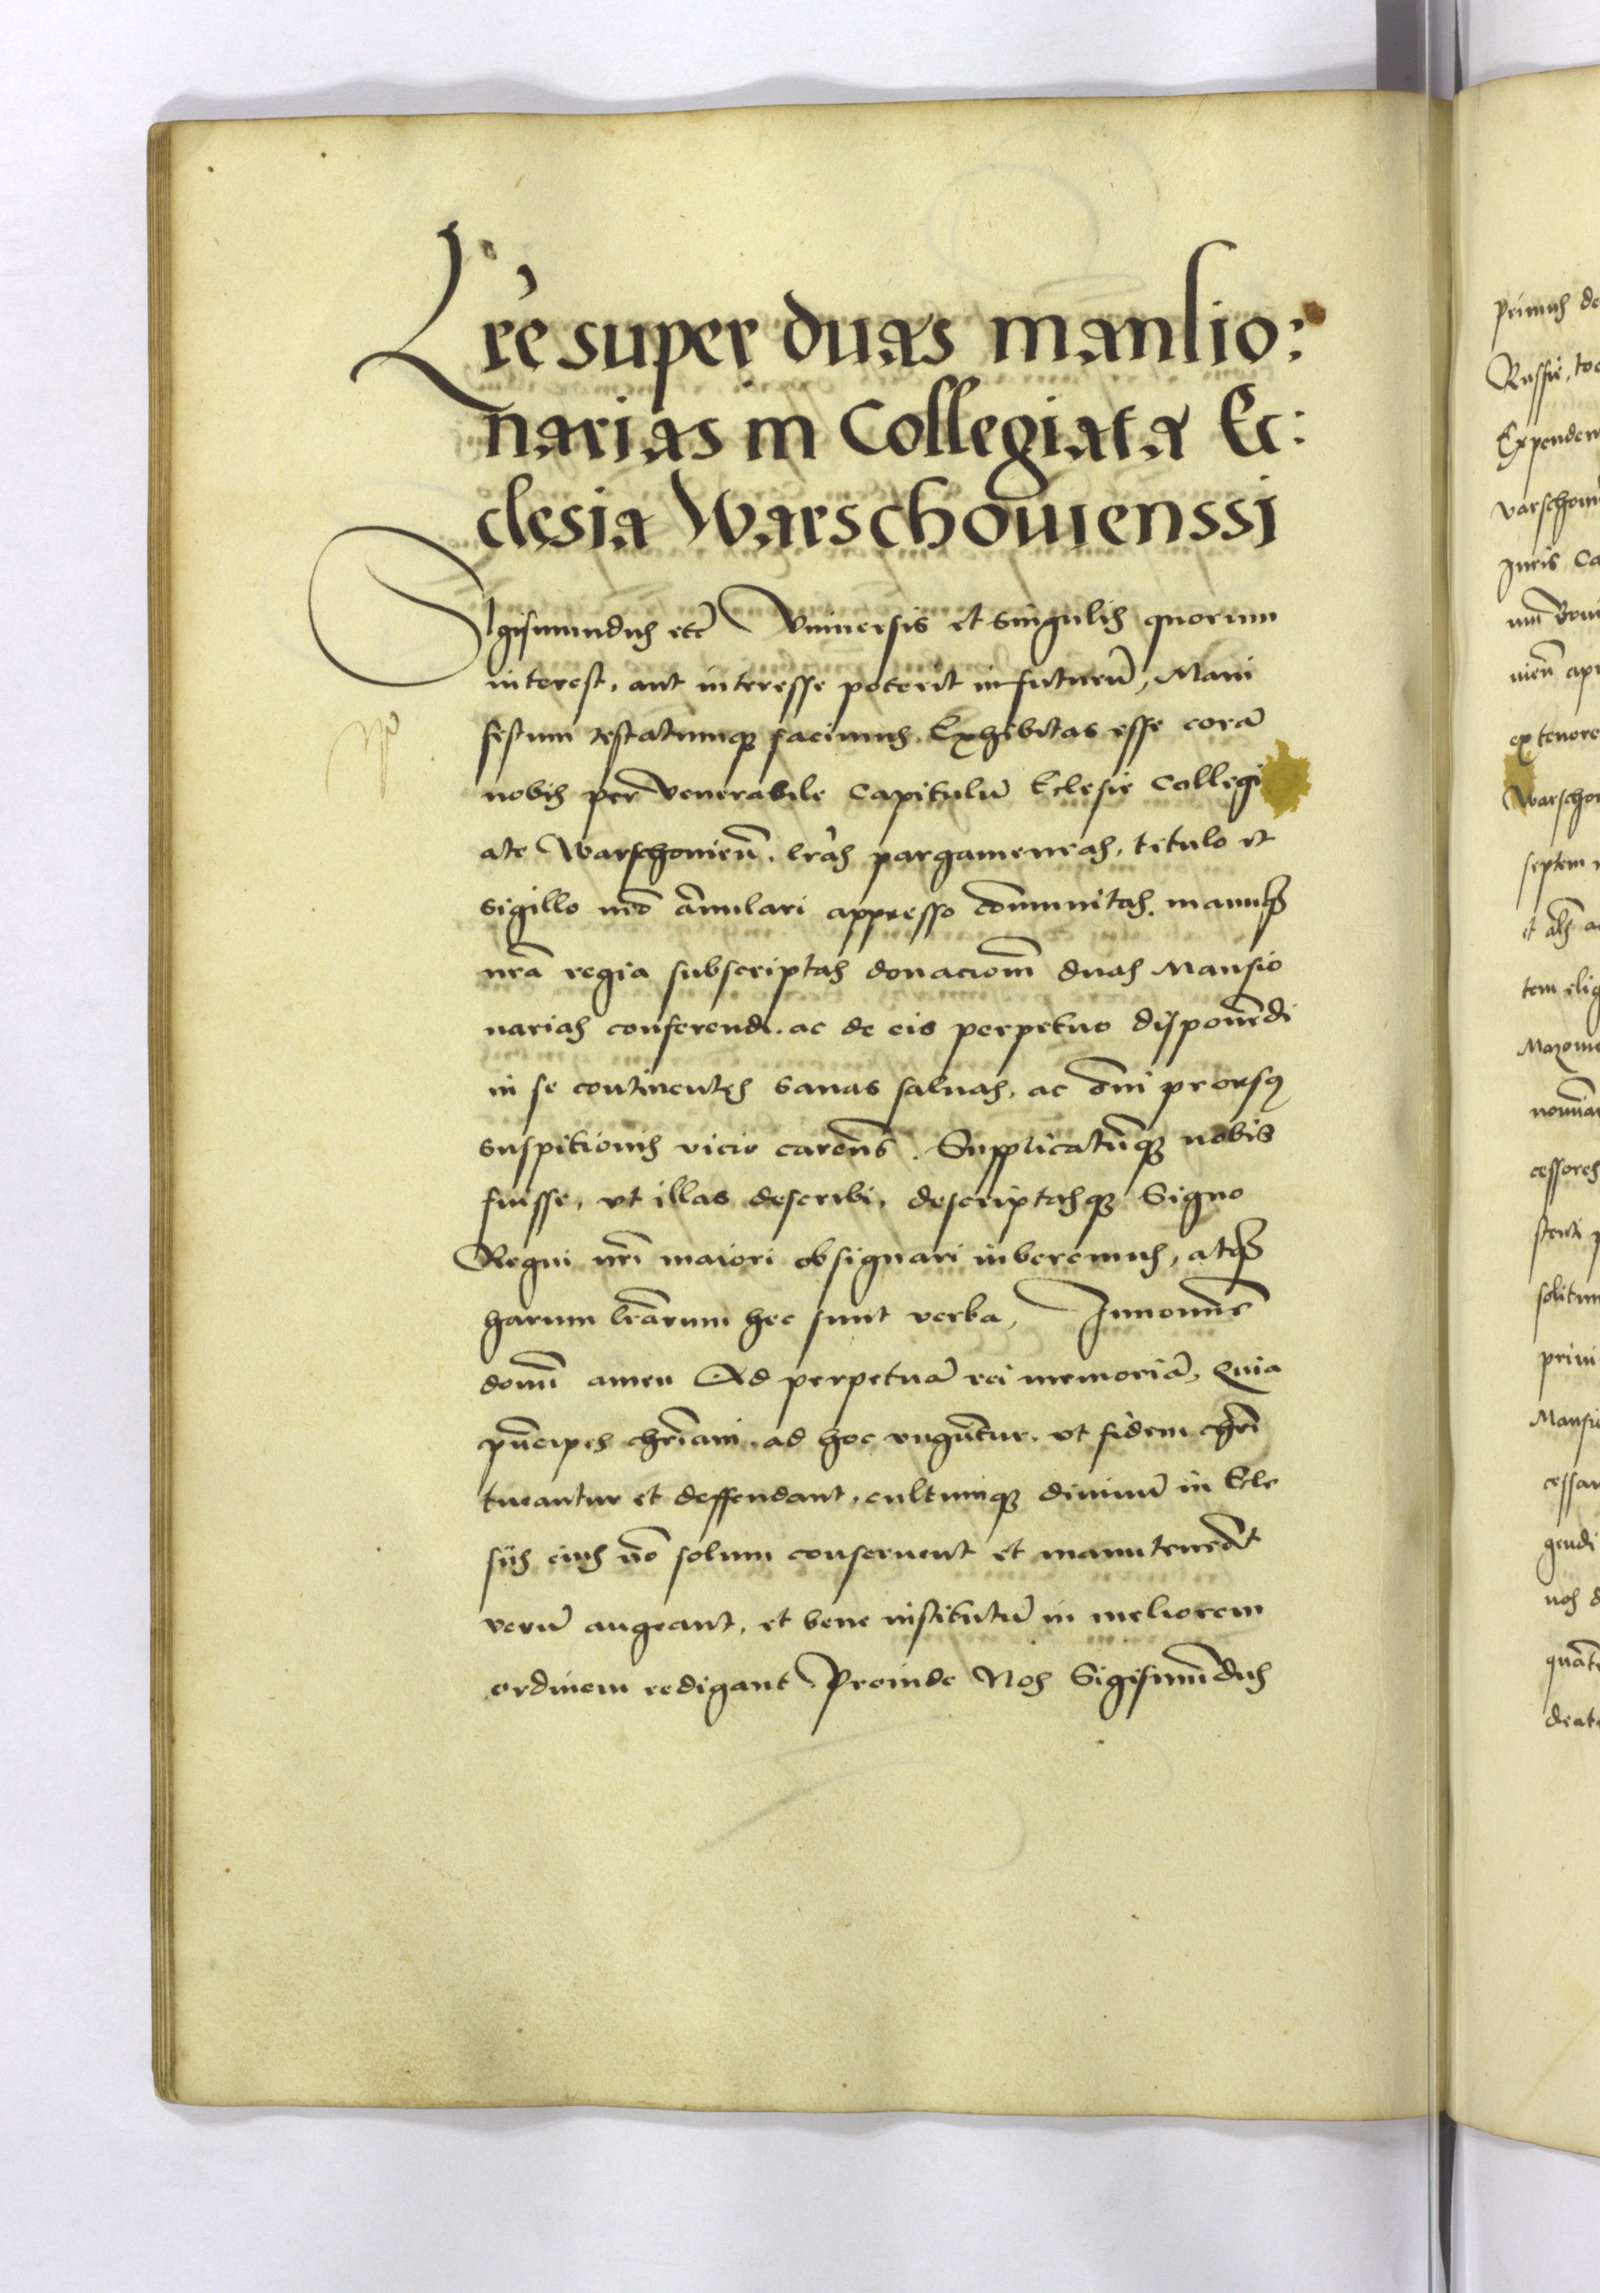 Lrẽ super duas mansio:
narias in Collegiata Ec:
clesia Warschouienssi
Sigismundus etc̃ Vniuersis et singulis quorum
interest, aut interesse poterit infuturũ, Mani
festum testatumqꝫ facimus. Exhibitas esse corã
nobis per Venerabile Capitulũ Eclesie Collegi
ate Warschouieñ. lrãs pargameneas, titulo et
sigillo nrõ ãnulari appresso cõmunitas. manuqꝫ
nrã regia subscriptas donacionẽ duas Mansio
narias conferendi. ac de eis perpetuo disponẽdi
in se continentes sanas saluas, ac õni prorsꝰ
suspitionis vicio carentes. Supplicatũqꝫ nobis
fuisse, vt illas describi, descriptasqꝫ Signo
Regni nrĩ maiori obsignari iuberemus, atqꝫ
harum lrãrum hec sunt verba, In nomine
domĩ amen Ad perpetuã rei memoriã, Quia
prĩcipes chrĩani, ad hoc vngũtur, vt fidem chrĩ
tueantur et deffendant, cultumqꝫ diuinũ in Ecle
sijs eius nõ solum conseruent et manuteneãt
verũ augeant, et bene institutũ in meliorem
ordinem redigant Proinde Nos Sigismũdus
primus de
Russie, to
Expenden
Warscho
iuris Ca
ex tenore
Warschou
septem
tem elig
cessores
solitum
Mansio
cessar
gendi
nos d
deat